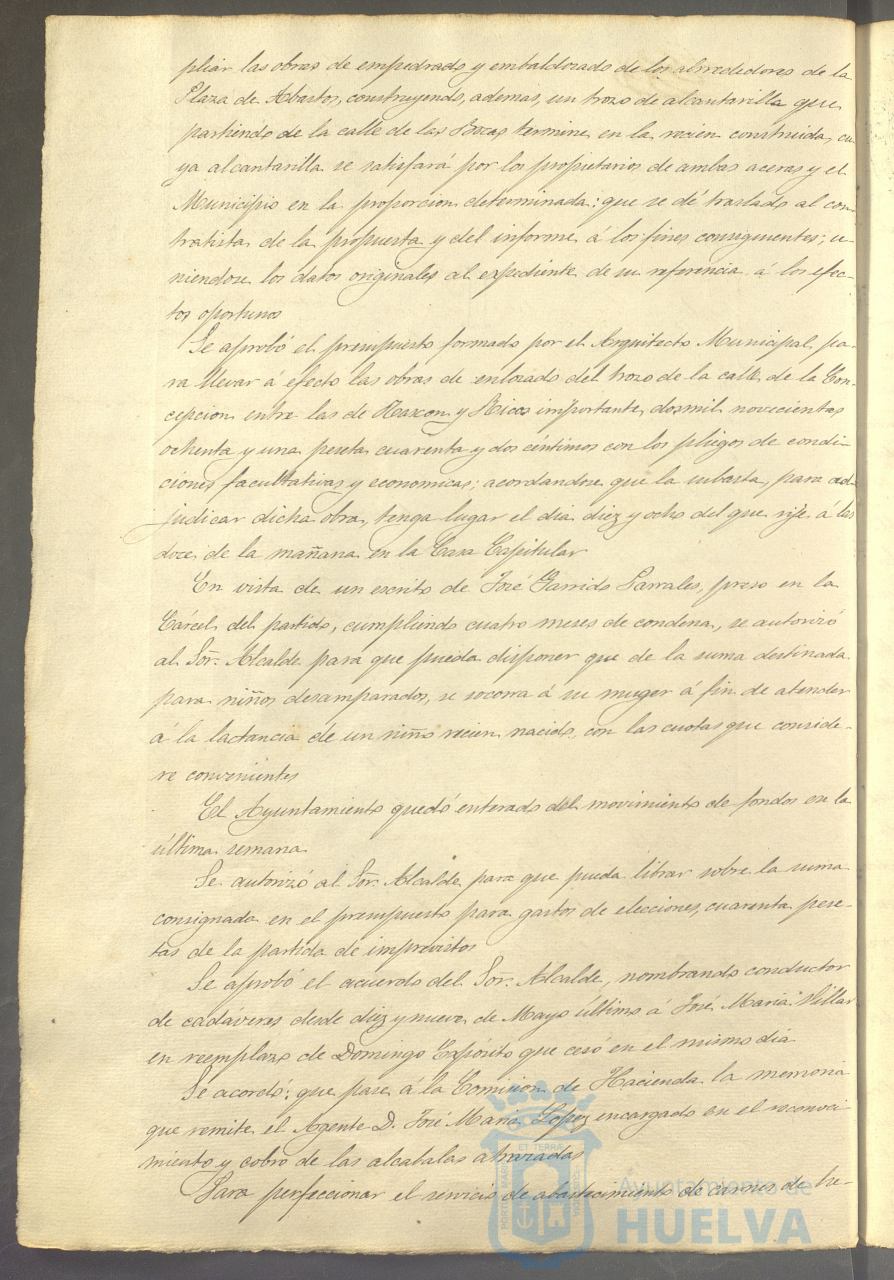 pliar las obras de empedrado y embaldozado de los alrrededores de la
Plaza de Abastos, construyendo, ademas, un trozo de alcantarilla que
partiendo de la calle de las Bocas termine en la recien construida, cu-
ya alcantarilla se satisfará por los propietarios de ambas aceras y el
Municipio en la proporcion determinada: que se dé traslado al con-
tratista de la propuesta y del informe á los fines consiguientes; u-
niendose los datos originales al expediente de su referencia á los efec-
tos oportunos
Se aprobó el presupuesto formado por el Arquitecto Municipal, pa-
ra llevar á efecto las obras de enlozado del trozo de la calle de la Con-
cepcion entre las de Rascon y Ricos importante, dosmil novecientas
ochenta y una peseta cuarenta y dos céntimos con los pliegos de condi-
ciones facultativas y economicas; acordandose que la subasta, para ad-
judicar dicha obra, tenga lugar el dia diez y ocho del que rije á las
doce de la mañana en la Casa Capitular
En vista de un escrito de José Garrido Parrales, preso en la
Cárcel del partido, cumpliendo cuatro meses de condena, se autorizó
al Sor. Alcalde para que pueda disponer que de la suma destinada
para niños desamparados, se socorra á su muger á fin de atender
á la lactancia de un niño recien nacido, con las cuotas que conside-
re convenientes
El Ayuntamiento quedó enterado del movimiento de fondos en la
última semana
Se autorizó al Sor. Alcalde, para que pueda librar sobre la suma
consignada en el presupuesto para gastos de elecciones, cuarenta pese-
tas de la partida de imprevistos
Se aprobó el acuerdo del Sor. Alcalde, nombrando conductor
de cadáveres desde diez y nueve de Mayo último á José Maria Villar
en reemplazo de Domingo Expósito que cesó en el mismo dia
Se acordó: que pase á la Comision de Hacienda la memoria
que remite el Agente D. José Maria Lopez encargado en el reconoci-
miento y cobro de las alcabalas atrazadas
Para perfeccionar el servicio de abastecimiento de carnes de he-
Ayuntamiento de
HUELVA